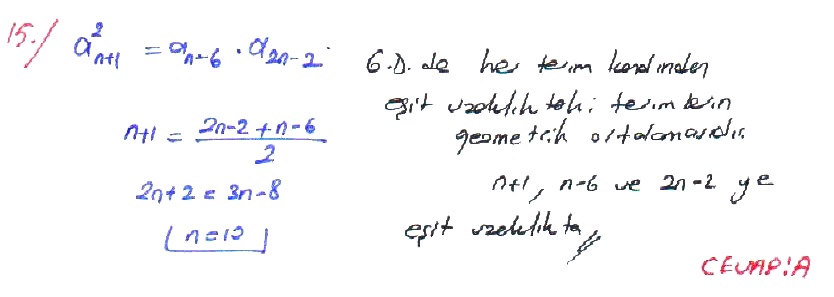 15./ a²ₙ₊₁ = aₙ₋₆ . a₂ₙ₋₂
G.D. de her terim kendinden
eşit uzaklıktaki terimlerin
geometrik ortalamasıdır.
n+1 = (2n-2+n-6)/2
2n+2 = 3n-8
n=10
n+1, n-6 ve 2n-2 ye
eşit uzaklıkta
CEVAP:A